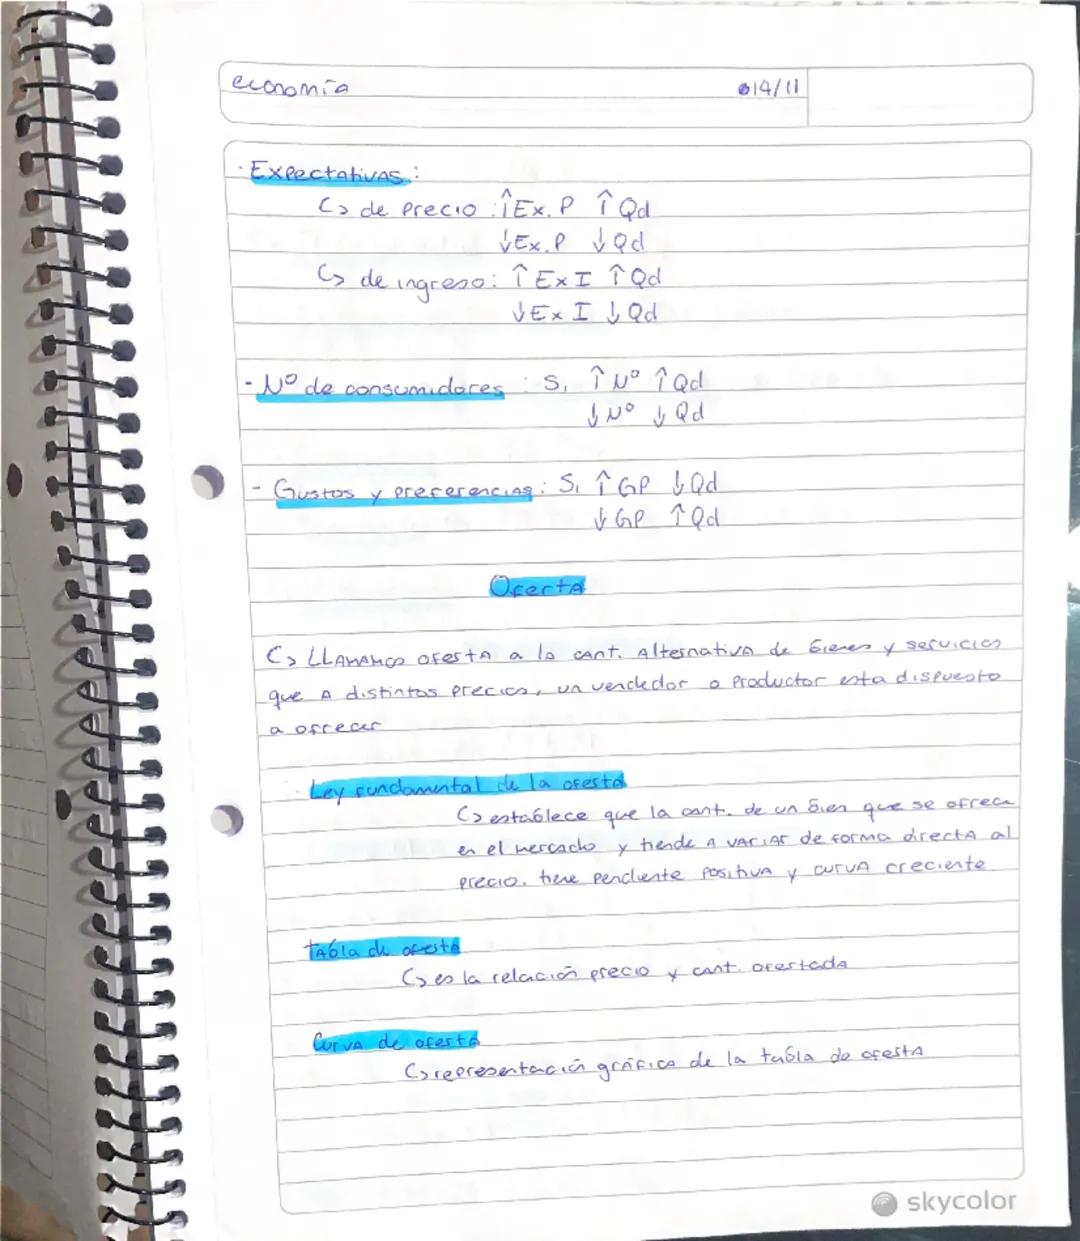 economía 14/11
· Expectativas :
↳ de precio : ↑Ex. P ↑ Qd
↓Ex. P ↓ Qd
↳ de ingreso : ↑ Ex I ↑ Qd
↓ Ex I ↓ Qd
- Nº de consumidores : Si ↑ Nº ↑ Qd
↓ Nº ↓ Qd
- Gustos y preferencias : Si ↑ GP ↓ Qd
↓ GP ↑ Qd
Oferta
↳ LLAMAMOS oferta a la cant. Alternativa de bienes y servicios
que A distintos precios, un vendedor o Productor esta dispuesto
a ofrecer
· Ley fundamental de la oferta
↳ establece que la cant. de un bien que se ofrece
en el mercado y tiende A variar de forma directa al
precio. tiene pendiente positiva y curva creciente
Tabla de oferta
↳ es la relación precio y cant. ofertada
Curva de oferta
↳ representación gráfica de la tabla de oferta
skycolor